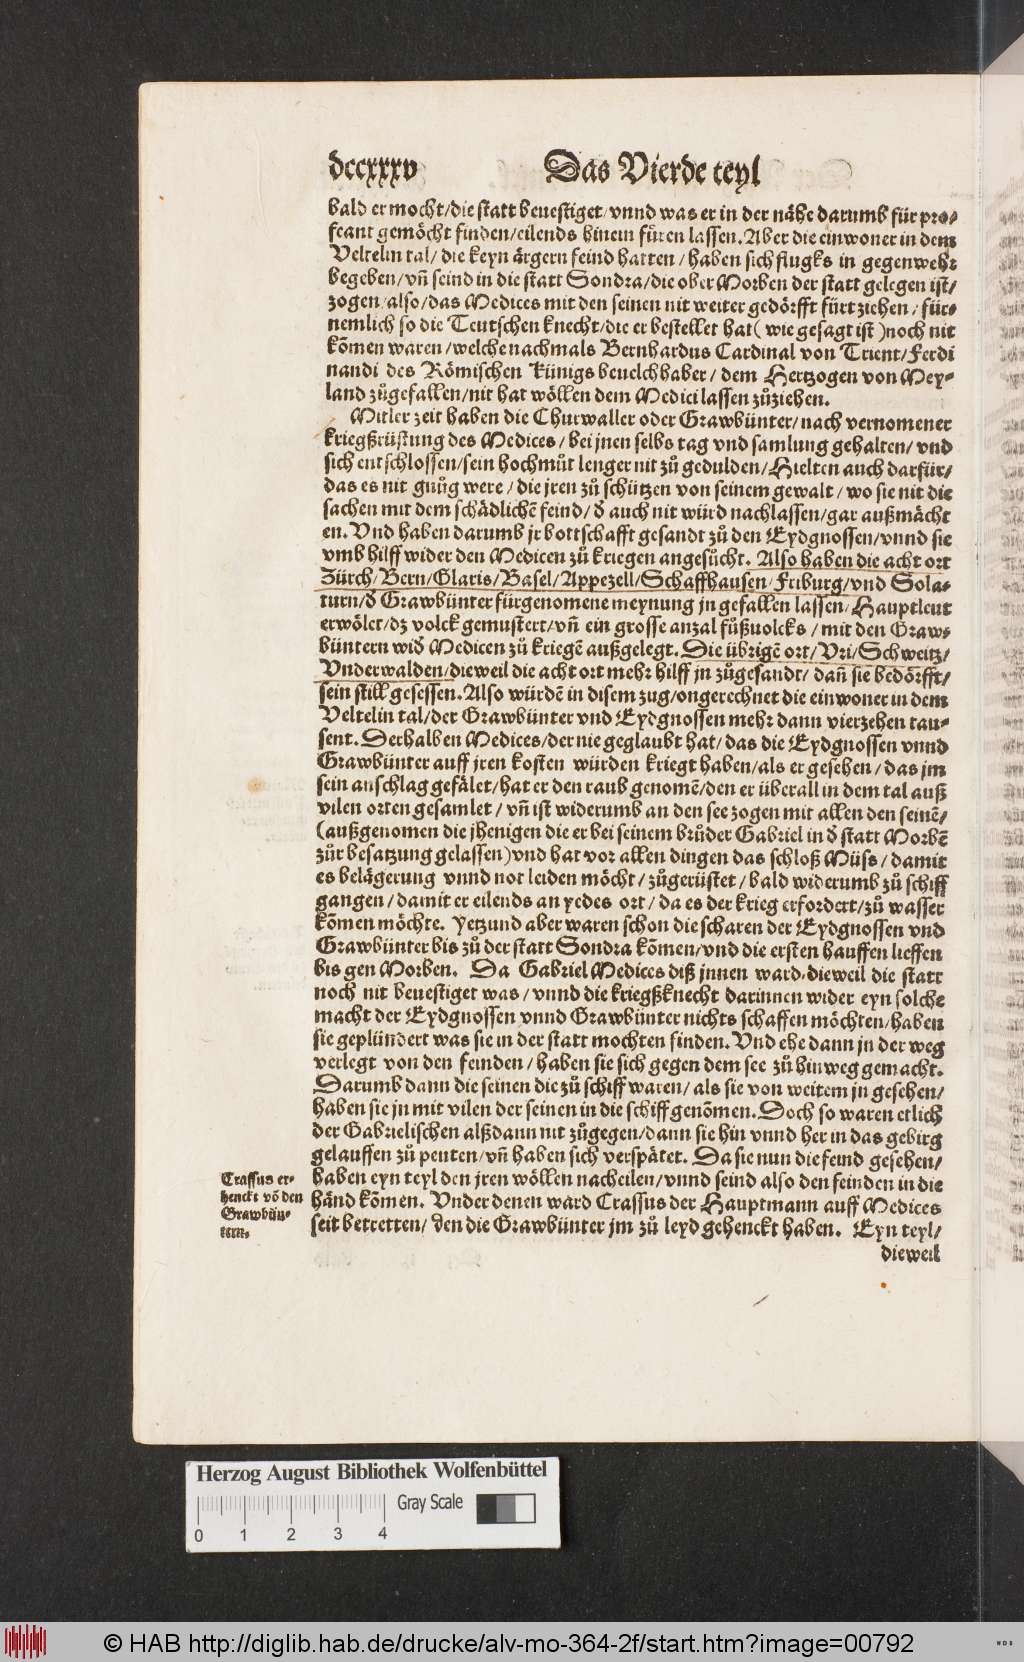 dccxxxv
Das Vierde teyl
bald er mocht/die statt beuestiget/vnnd was er in der nähe darumb für pro-
feant gemöcht finden/eilends hinein fůren lassen. Aber die einwoner in dem
Veltelin tal/ die keyn ärgern feind hatten/ haben sich flugks in gegenwehr
begeben/vñ seind in die statt Sondra/die ober Morben der statt gelegen ist/
zogen/also/das Medices mit den seinen nit weiter gedörfft fürt ziehen/ für-
nemlich so die Teutschen knecht/die er bestellet hat( wie gesagt ist )noch nit
kõmen waren/welche nachmals Bernhardus Cardinal von Trient/Ferdi
nandi des Römischen Künigs beuelchhaber/ dem Hertzogen von Mey-
land zůgefallen/nit hat wöllen dem Medici lassen zůziehen.
Mitler zeit haben die Churwaller oder Grawbünter/nach vernomener
kriegßrüstung des Medices/ bei jnen selbs tag vnd samlung gehalten/ vnd
sich entschlossen/sein hochmůt lenger nit zů gedulden/Hielten auch darfür/
das es nit gnůg were/ die jren zů schützen von seinem gewalt/ wo sie nit die
sachen mit dem schädlichẽ feind/ð auch nit würd nachlassen/gar außmächt
en. Vnd haben darumb jr bottschafft gesandt zů den Eydgnossen/vnnd sie
vmb hilff wider den Medicen zů kriegen angesůcht. Also haben die acht ort
Zürch/Bern/Glaris/Basel/Appezell/Schaffhausen/Friburg/vnd Sola-
turn/ð Grawbünter fürgenomene meynung jn gefallen lassen/Hauptleut
erwölet/dz volck gemustert/vñ ein grosse anzal fůßuolcks/mit den Graw-
büntern wið Medicen zů kriegẽ außgelegt. Die übrigẽ ort/Vri/Schweitz/
Vnderwalden/dieweil die acht ort mehr hilff jn zůgesandt/ dañ sie bedörfft/
sein still gesessen. Also würdẽ in disem zug/ongerechnet die einwoner in dem
Veltelin tal/der Grawbünter vnd Eydgnossen mehr dann vierzehen tau-
sent. Derhalben Medices/der nie geglaubt hat/das die Eydgnossen vnnd
Grawbünter auff jren kosten würden kriegt haben/als er gesehen/ das jm
sein anschlag gefälet/hat er den raub genomẽ/den er überall in dem tal auß
vilen orten gesamlet/ vñ ist widerumb an den see zogen mit allen den seinẽ/
(außgenomen die jhenigen die er bei seinem brůder Gabriel in ð statt Morbẽ
zůr besatzung gelassen)vnd hat vor allen dingen das schloß Müss/damit
es belägerung vnnd not leiden möcht/zůgerüstet/bald widerumb zů schiff
gangen/damit er eilends an yedes ort/ da es der krieg erfordert/zů wasser
kõmen möchte. Yetzund aber waren schon die scharen der Eydgnossen vnd
Grawbünter bis zů der statt Sondra kõmen/vnd die ersten hauffen lieffen
bis gen Morben. Da Gabriel Medices diß jnnen ward/dieweil die statt
noch nit beuestiget was/vnnd die kriegßknecht darinnen wider eyn solche
macht der Eydgnossen vnnd Grawbünter nichts schaffen möchten/haben
sie geplündert was sie in der statt mochten finden. Vnd ehe dann jn der weg
verlegt von den feinden/haben sie sich gegen dem see zů hinweg gemacht.
Darumb dann die seinen die zů schiff waren/als sie von weitem jn gesehen/
haben sie jn mit vilen der seinen in die schiff genõmen. Doch so waren etlich
der Gabrielischen alßdann nit zůgegen/dann sie hin vnnd her in das gebirg
gelauffen zů peuten/vñ haben sich verspätet. Da sie nun die feind gesehen/
haben eyn teyl den jren wöllen nacheilen/vnnd seind also den feinden in die
händ kõmen. Vnder denen ward Crassus der Hauptmann auff Medices
seit betretten/ den die Grawbünter jm zů leyd gehenckt haben. Eyn teyl/
dieweil
Crassus er-
henckt võ den
Grawbün-
tern.
Herzog August Bibliothek Wolfenbüttel
Gray Scale
0 1 2 3 4
© HAB http://diglib.hab.de/drucke/alv-mo-364-2f/start.htm?image=00792